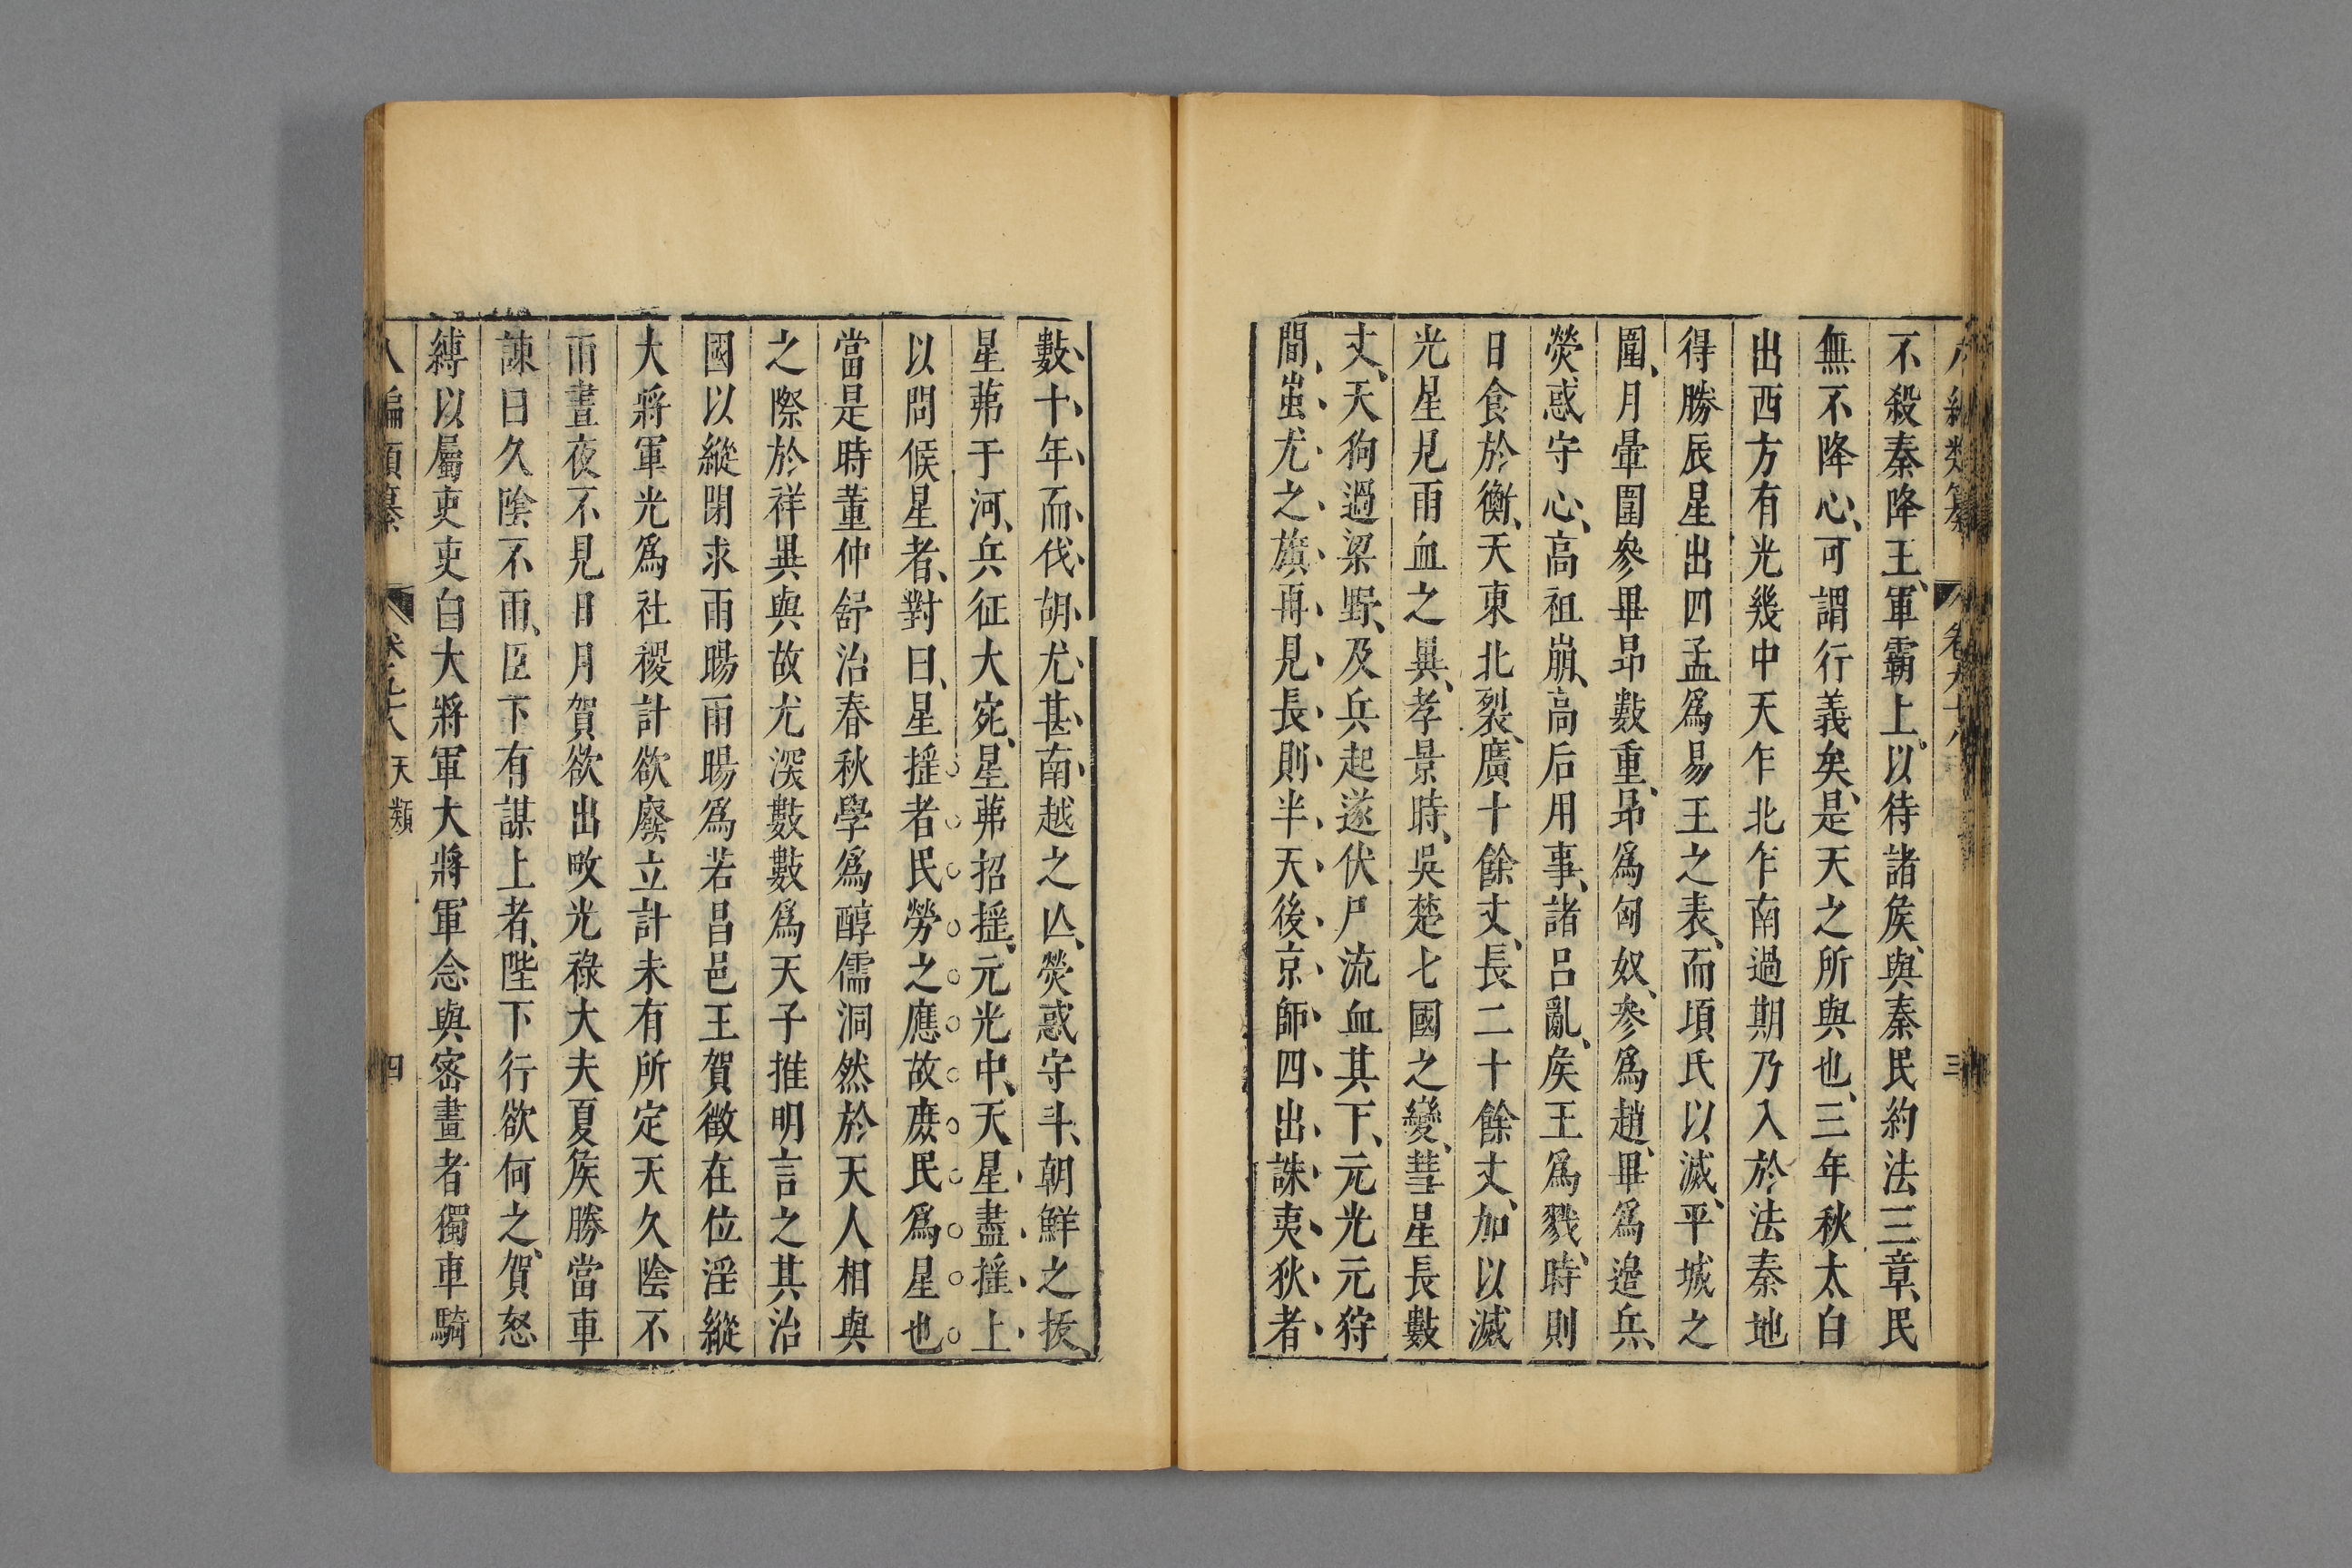 不殺秦降王、軍霸上。以待諸矦、與秦民約法三章、民
無不降心、可謂行義矣、是天之所與也、三年秋太白
出西方有光幾中天乍北乍南過期乃入於法秦地
得勝辰星出四孟爲易王之表、而項氏以滅、平城之
圍、月暈圍參畢昴數重、昴爲匈奴、參爲趙、畢爲邉兵、
熒惑守心、高祖崩、高后用事、諸呂亂、矦王爲戮、時則
日食於衡、天東北裂、廣十餘丈、長二十餘丈、加以滅
光星見雨血之異、孝景時、吳楚七國之變、彗星長數
丈、天狗過梁野、及兵起遂伏尸流血其下、元光元狩
間蚩尤之旗再見長則半天後京師四出誅夷狄者
數十年而伐胡尤甚南越之亾、熒惑守斗、朝鮮之拔
星茀于河、兵征大宛、星茀招摇、元光中、天星盡摇上
以問候星者、對曰、星摇者民勞之應故庶民爲星也
當是時董仲舒治春秋學爲醇儒洞然於天人相與
之際於祥異與故尤深數數爲天子推明言之其治
國以縱閉求雨暘雨暘爲若昌邑王賀徵在位淫縱
大將軍光爲社稷計欲廢立計未有所定天久陰不
雨晝夜不見日月賀欲出畋光祿大夫夏矦勝當車
諫曰久陰不雨、臣下有謀上者、陛下行欲何之、賀怒
縛以屬吏吏白大將軍大將軍念與密畫者獨車騎
八編類纂
天類
四